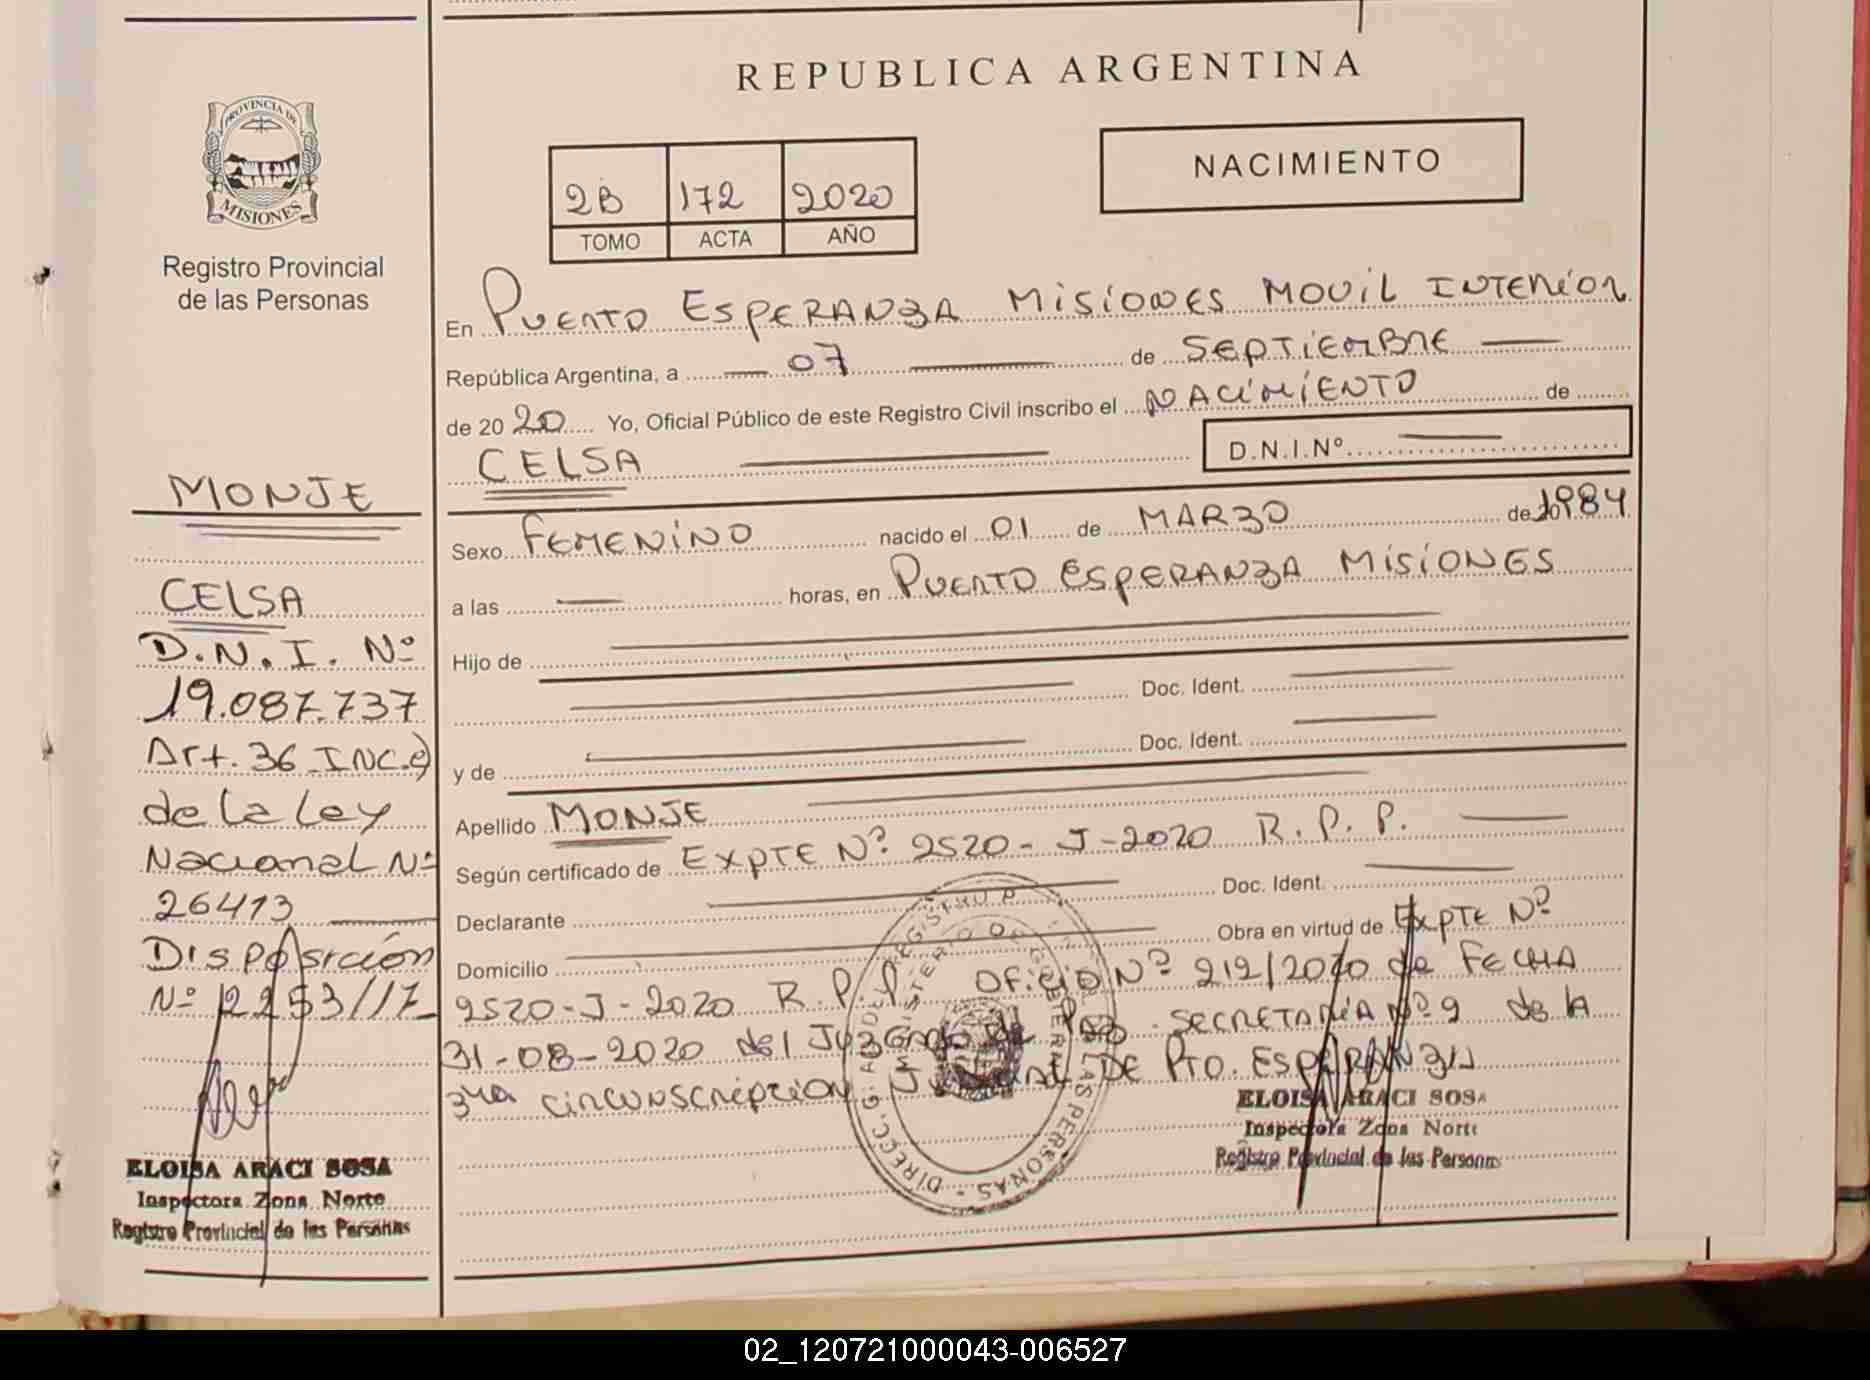 REPUBLICA ARGENTINA
PROVINCIA DE
MISIONES
Registro Provincial
de las Personas
NACIMIENTO
2B 172 2020
TOMO ACTA AÑO
En PUERTO ESPERANZA MISIONES MOVIL INTERIOR
República Argentina, a 07 de SEPTIEMBRE
de 2020 Yo, Oficial Público de este Registro Civil inscribo el NACIMIENTO de
CELSA D.N.I.Nº
Sexo FEMENINO nacido el 01 de MARZO de 1984
a las horas, en PUERTO ESPERANZA MISIONES
Hijo de
Doc. Ident.
y de Doc. Ident.
Apellido MONJE
Según certificado de EXPTE Nº 2520-J-2020 R.P.P.
Declarante Doc. Ident.
Domicilio Obra en virtud de EXPTE Nº
2520-J-2020 R.P.P. OFICIO Nº 212/2020 de FECHA
31-08-2020 del Juzgado de PAZ SECRETARIA Nº 2 de la
3ra CIRCUNSCRIPCION DE PTO. ESPERANZA
ELOISA ARACI SOSA
Inspectora Zona Norte
Registro Provincial de las Personas
MONJE
CELSA
D.N.I. Nº
19.087.737
Art. 36 INC. e)
de la Ley
Nacional Nº
26413
Disposición
Nº 2253/17
ELOISA ARACI SOSA
Inspectora Zona Norte
Registro Provincial de las Personas
DIRECC. G. REGISTRO P. DE LAS PERSONAS
MINISTERIO DE GOBIERNO
02_120721000043-006527